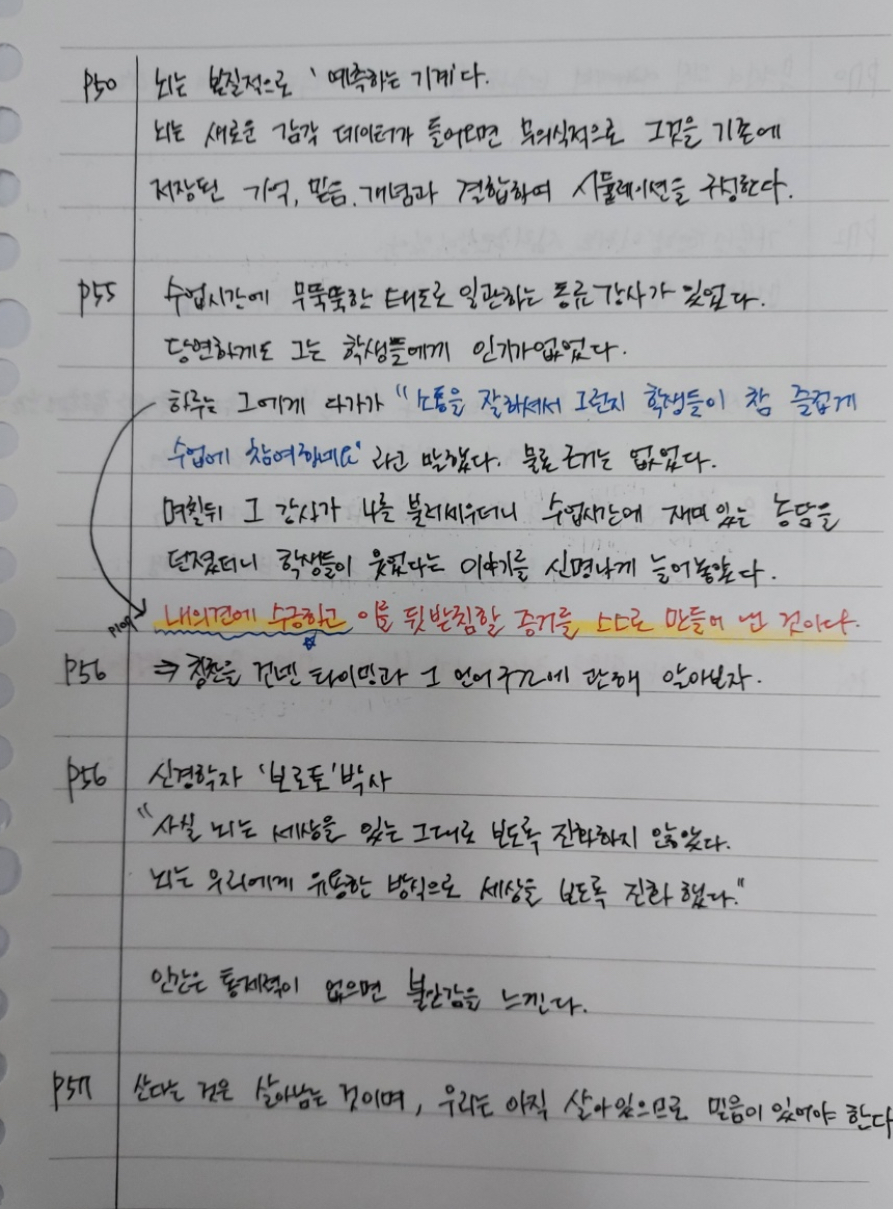 P50 뇌는 본질적으로 '예측하는 기계'다.
뇌는 새로운 감각 데이터가 들어오면 무의식적으로 그것을 기존에
저장된 기억, 믿음, 개념과 결합하여 시뮬레이션을 구성한다.
P55 수업시간에 무뚝뚝한 태도로 일관하는 동료강사가 있었다.
당연하게도 그는 학생들에게 인기가없었다.
하루는 그에게 다가가 "소통을 잘하셔서 그런지 학생들이 참 즐겁게
수업에 참여하네요" 라고 말했다. 물론 근거는 없었다.
며칠뒤 그 강사가 나를 불러세우더니 수업시간에 재미 있는 농담을
던졌더니 학생들이 웃었다는 이야기를 신명나게 늘어놓았다.
P109 내의견에 수긍하고 이를 뒷받침할 증거를 스스로 만들어 낸 것이다.
P56 ⇒ 칭찬을 건넨 타이밍과 그 언어구간에 관해 알아보자.
P56 신경학자 '보로토'박사
"사실 뇌는 세상을 있는 그대로 보도록 진화하지 않았다.
뇌는 우리에게 유용한 방식으로 세상을 보도록 진화 했다."
인간은 통제력이 없으면 불안감을 느낀다.
P57 산다는 것은 살아남는 것이며, 우리는 아직 살아있으므로 믿음이 있어야 한다